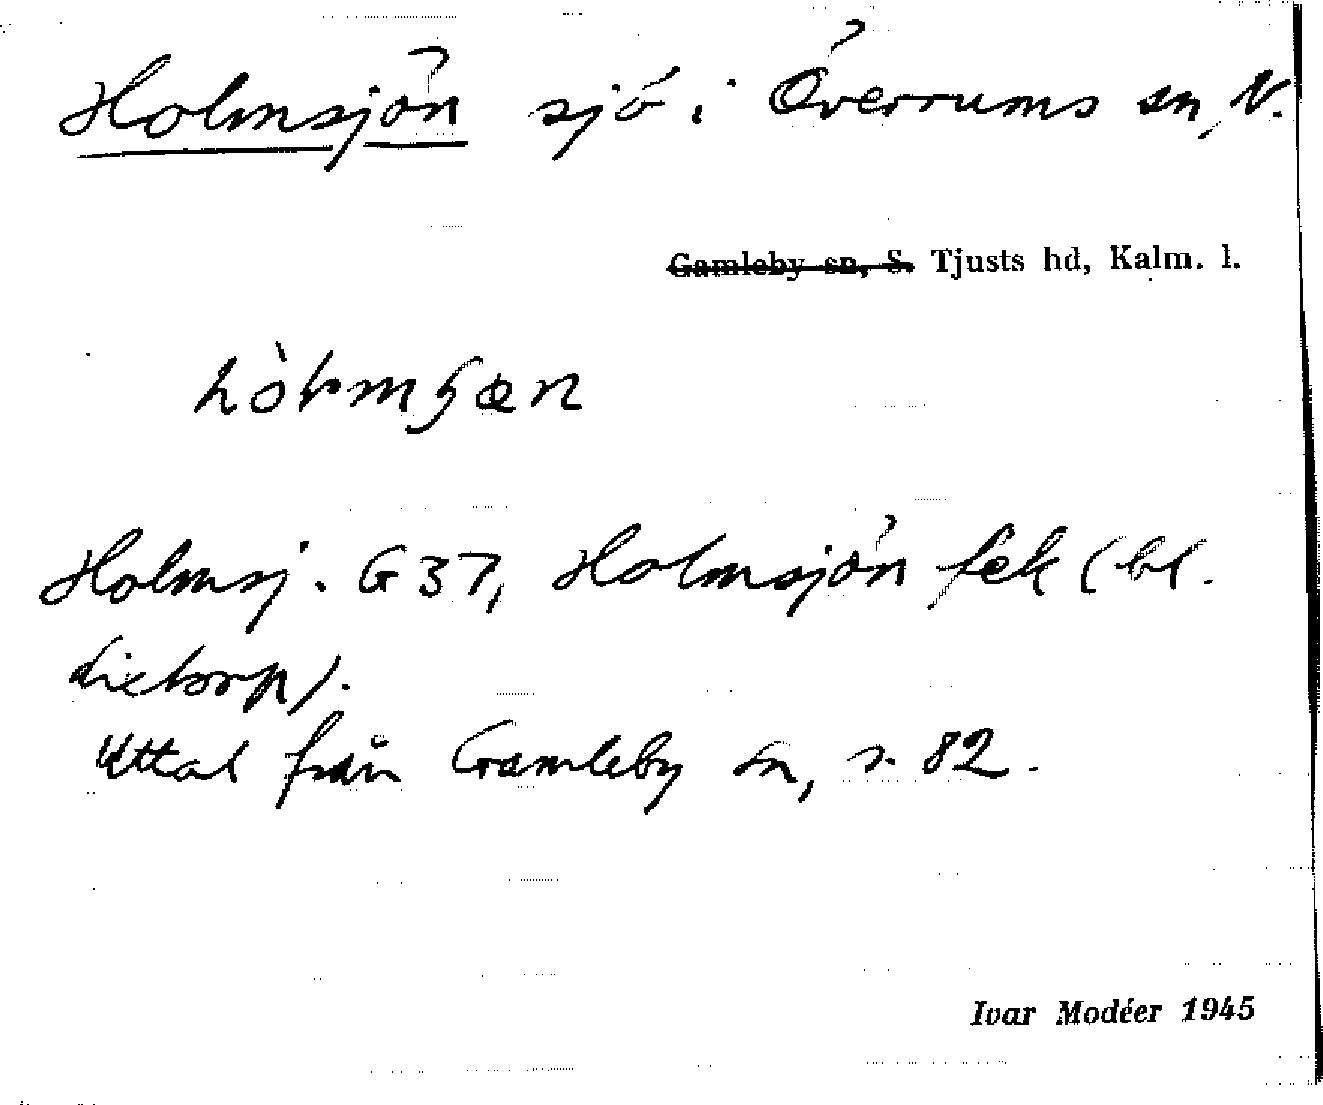 Holmsjön sjö i Överrums sn, N.
Gamleby sn, S. Tjusts hd, Kalm. l.
Holmsj. G 37, Holmsjön (bl.
Uttal från Gamleby sn, s. 82.
Ivar Modéer 1945